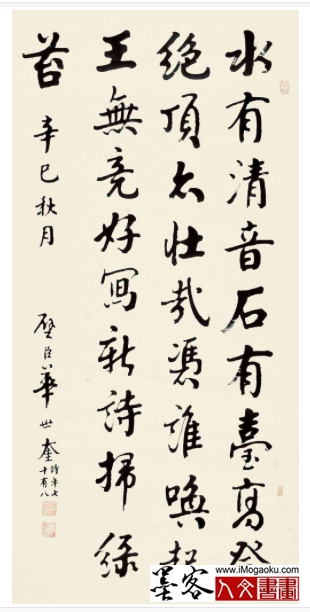 水有清音石有臺高登
絕頂亦壯哉憑誰喚起
王無竞好寫新詩掃綠
苔
辛巳秋月
壁臣華世奎時年七十有八
墨客
www.iMogaoku.com
人文書畫